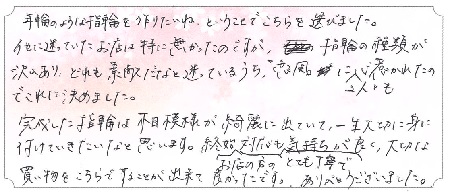 年輪のような指輪を作りたいね、ということでこちらを選びました。
他に迷っていたお店は特に無かったのですが、指輪の種類が
沢山あり、どれも素敵だなと迷っているうち、"恋風"に2人とも惹かれたの
でこれに決めました。
完成した指輪は木目模様が綺麗に出ていて、一生大切に身に
付けていきたいなと思います。終始対応も気持ちが良く、大切な
お店の方のとても丁寧で
買い物をこちらですることが出来て良かったです。ありがとうございました。